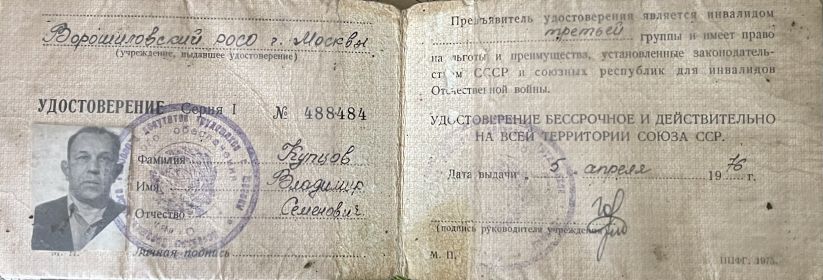 Ворошиловский РОСО г. Москвы
(учреждение, выдавшее удостоверение)
УДОСТОВЕРЕНИЕ Серия I № 488484
Фамилия Купцов
Имя Владимир
Отчество Семенович
М. П. Личная подпись
Предъявитель удостоверения является инвалидом
третьей группы и имеет право
на льготы и преимущества, установленные законодатель-
ством СССР и союзных республик для инвалидов
Отечественной войны.
УДОСТОВЕРЕНИЕ БЕССРОЧНОЕ И ДЕЙСТВИТЕЛЬНО
НА ВСЕЙ ТЕРРИТОРИИ СОЮЗА ССР.
Дата выдачи „5 апреля 1976 г.
(подпись руководителя учреждения)
М. П. 1975.